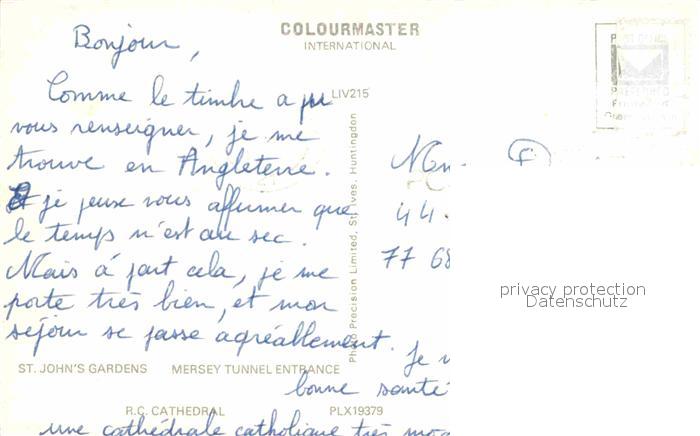 COLOURMASTER
INTERNATIONAL
Bonjour,
Comme le timbre a pu
vous renseigner, je me
trouve en Angleterre.
je peux vous affirmer que
le temps n'est au sec.
Mais à part cela, je me
porte très bien, et mon
séjour se passe agréablement.
Je
bonne santé
une cathédrale catholique très
LIV215
Photo Precision Limited, St. Ives, Huntingdon
44.
77 68
privacy protection
Datenschutz
ST. JOHN'S GARDENS MERSEY TUNNEL ENTRANCE
R.C. CATHEDRAL PLX19379